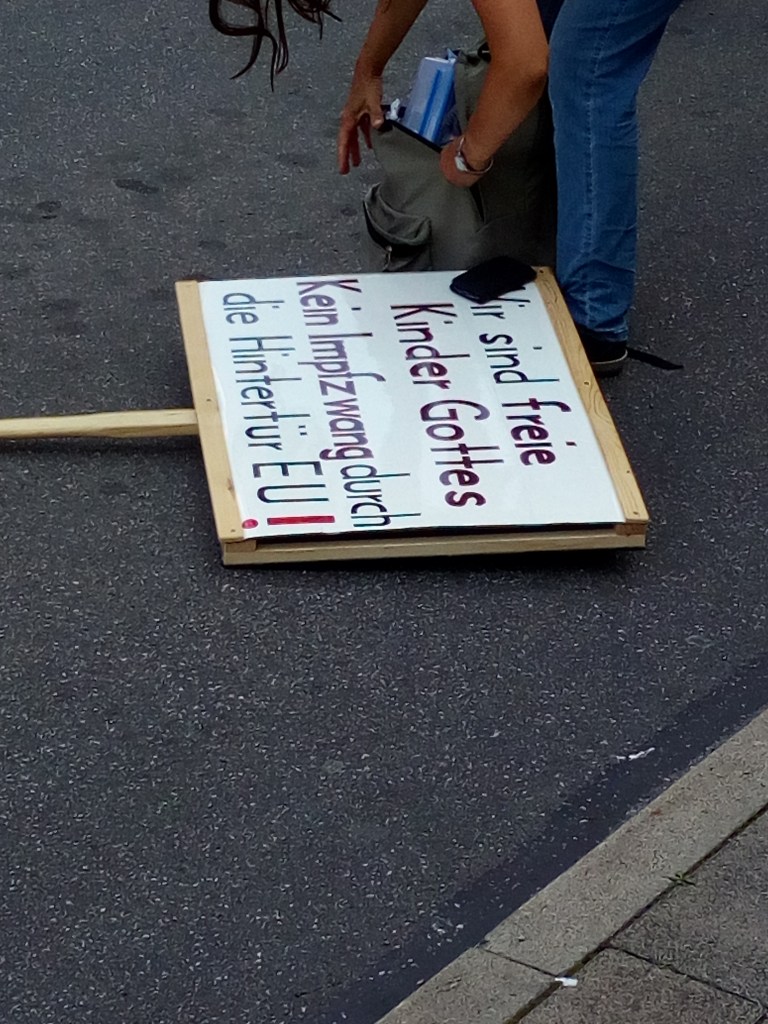 Wir sind freie
Kinder Gottes
Kein Impfzwang durch
die Hintertür EU!